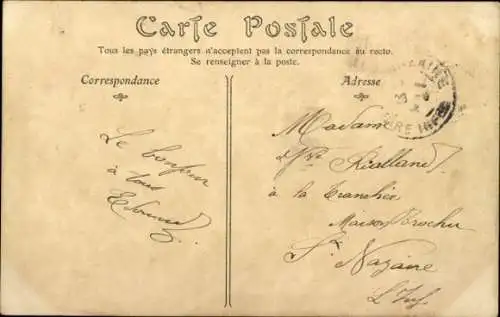 Carte Postale
Tous les pays étrangers n'acceptent pas la correspondance au recto.
Se renseigner à la poste.
Correspondance
Adresse
Le bonjour
à tous
Madame
Vve Rialland
à la Tranchée
Maison Brochu
St Nazaire
L. Inf